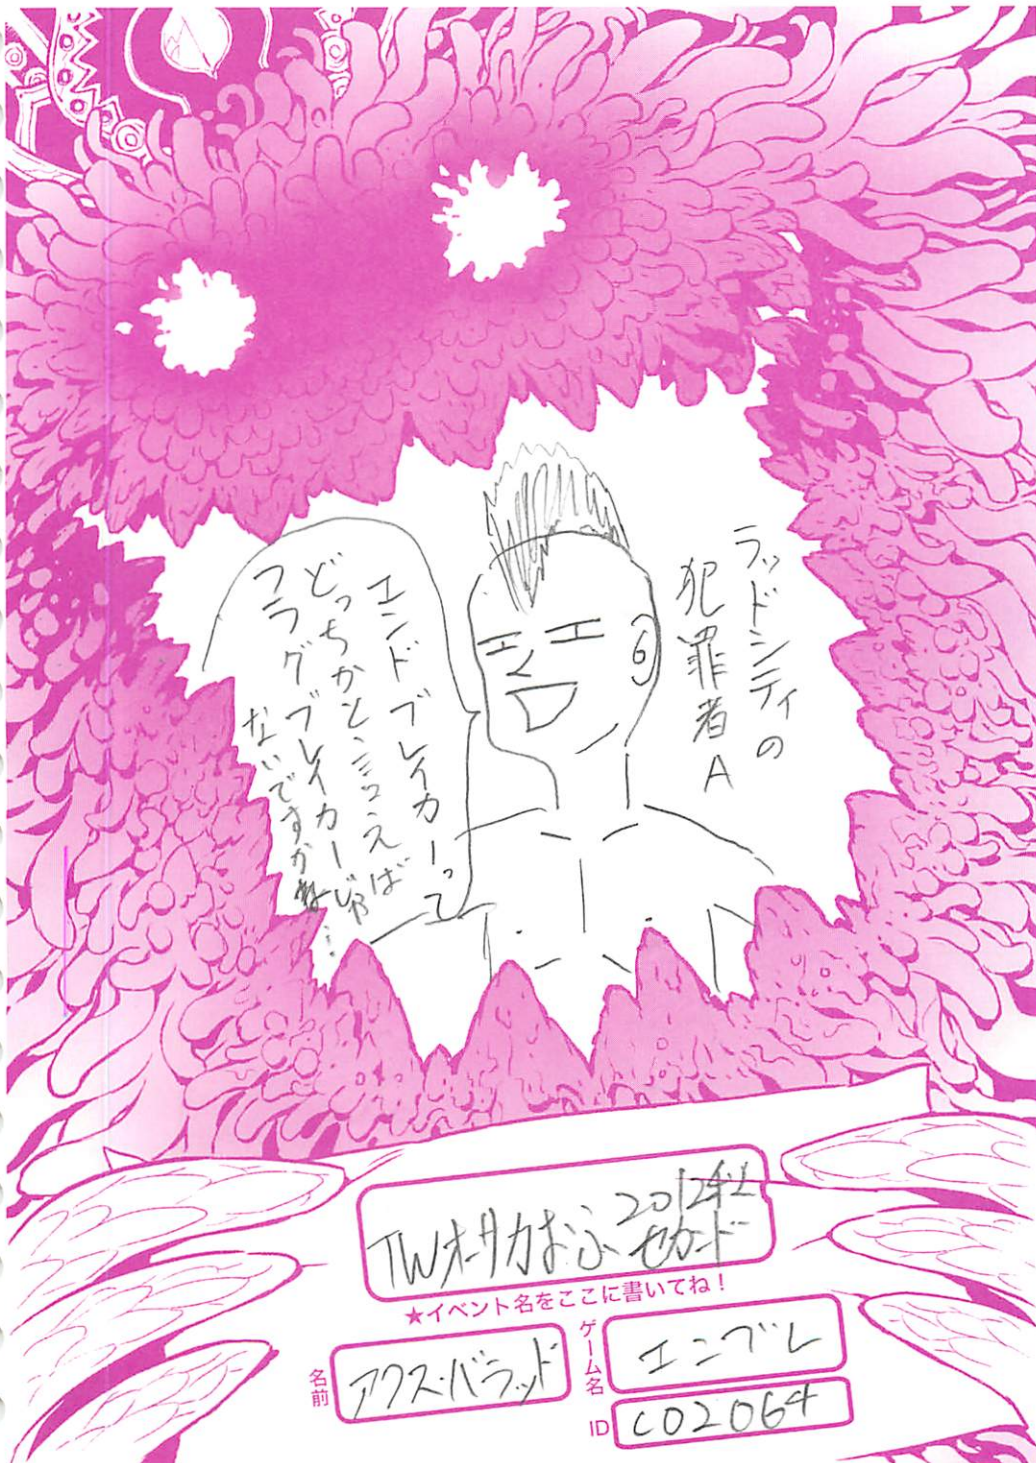 ラッドシティの
犯罪者A
エンドブレイカーって
どっちかと言えば
フラグブレイカーじゃ
ないですかね…
TWオーサカおふ2012秋
セカンド
★イベント名をここに書いてね！
名前
アクス・バラッド
ゲーム名
エンブレ
ID
c02064